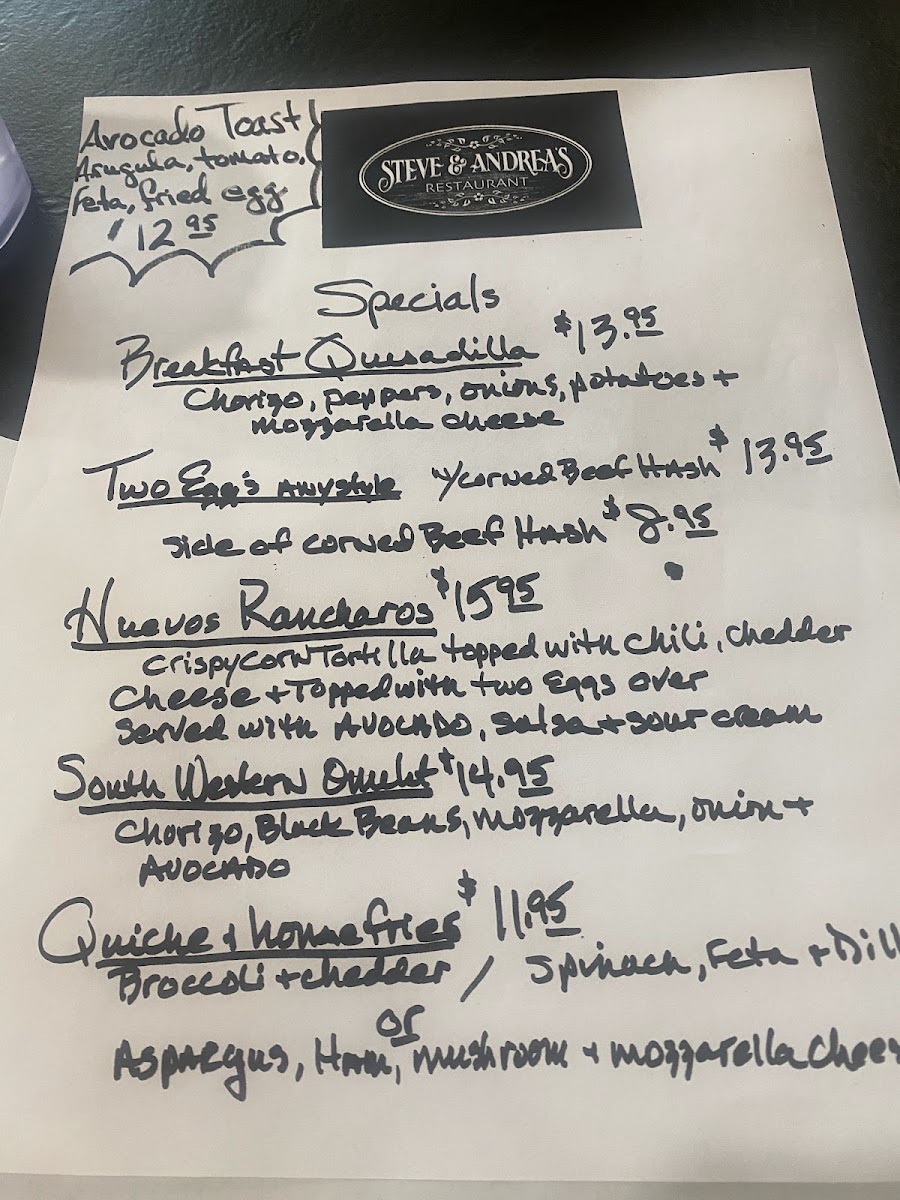 Avocado Toast!
Arugula, tomato,
Feta, fried egg
$12.95
STEVE & ANDREA'S
RESTAURANT
Specials
Breakfast Quesadilla $13.95
Chorizo, peppers, onions, potatoes +
mozzarella cheese
Two Egg's Anystyle w/corned Beef Hash $13.95
side of corned Beef Hash $8.95
Huevos Rancharos $15.95
Crispy Corn Tortilla topped with chili, chedder
Cheese + Topped with two Eggs over
Served with Avocado, salsa + sour cream
South Western Omelet $14.95
Chorizo, Black Beans, mozzarella, onion +
Avocado
Quiche + homefries $11.95
Broccoli + chedder / Spinach, Feta + Dill
or
Aspargus, Ham, mushroom + mozzarella Chees